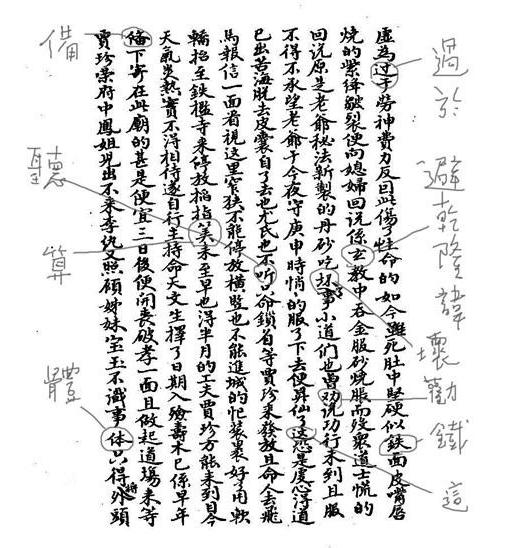 過於
避乾隆諱
壞
勸
鐵
這
虛為过于勞神費力反因此傷了性命的如今雖死肚中堅硬似鉄面皮嘴唇
燒的紫絳皺裂便向媳婦回说係玄教中吞金服砂燒脹而殁衆道士慌的
回说原是老爺秘法新製的丹砂吃坏事小道们也曾劝说功行未到且服
不得不承望老爺于今夜守庚申時悄的服了下去便昇仙了这恐是虔心得道
已出苦海脱去皮囊自了去也尤氏也不听只命鎖着等賈珍来發放且命人去飛
馬報信一面看視这里窄狹不能停放横竪也不能進城的忙裝裹好了用軟
轎抬至鉄檻寺来停放掐指筭来至早也得半月的工夫賈珍方能来到目今
天氣炎熱實不得相待遂自行主持命天文生擇了日期入殮壽木已係早年
俻下寄在此廟的甚是便宜三日後便開丧破孝一面且做起道塲来等
賈珍榮府中鳳姐児出不来李纨又照顧姊妹宝玉不識事体只得将外頭
備
聽
算
體